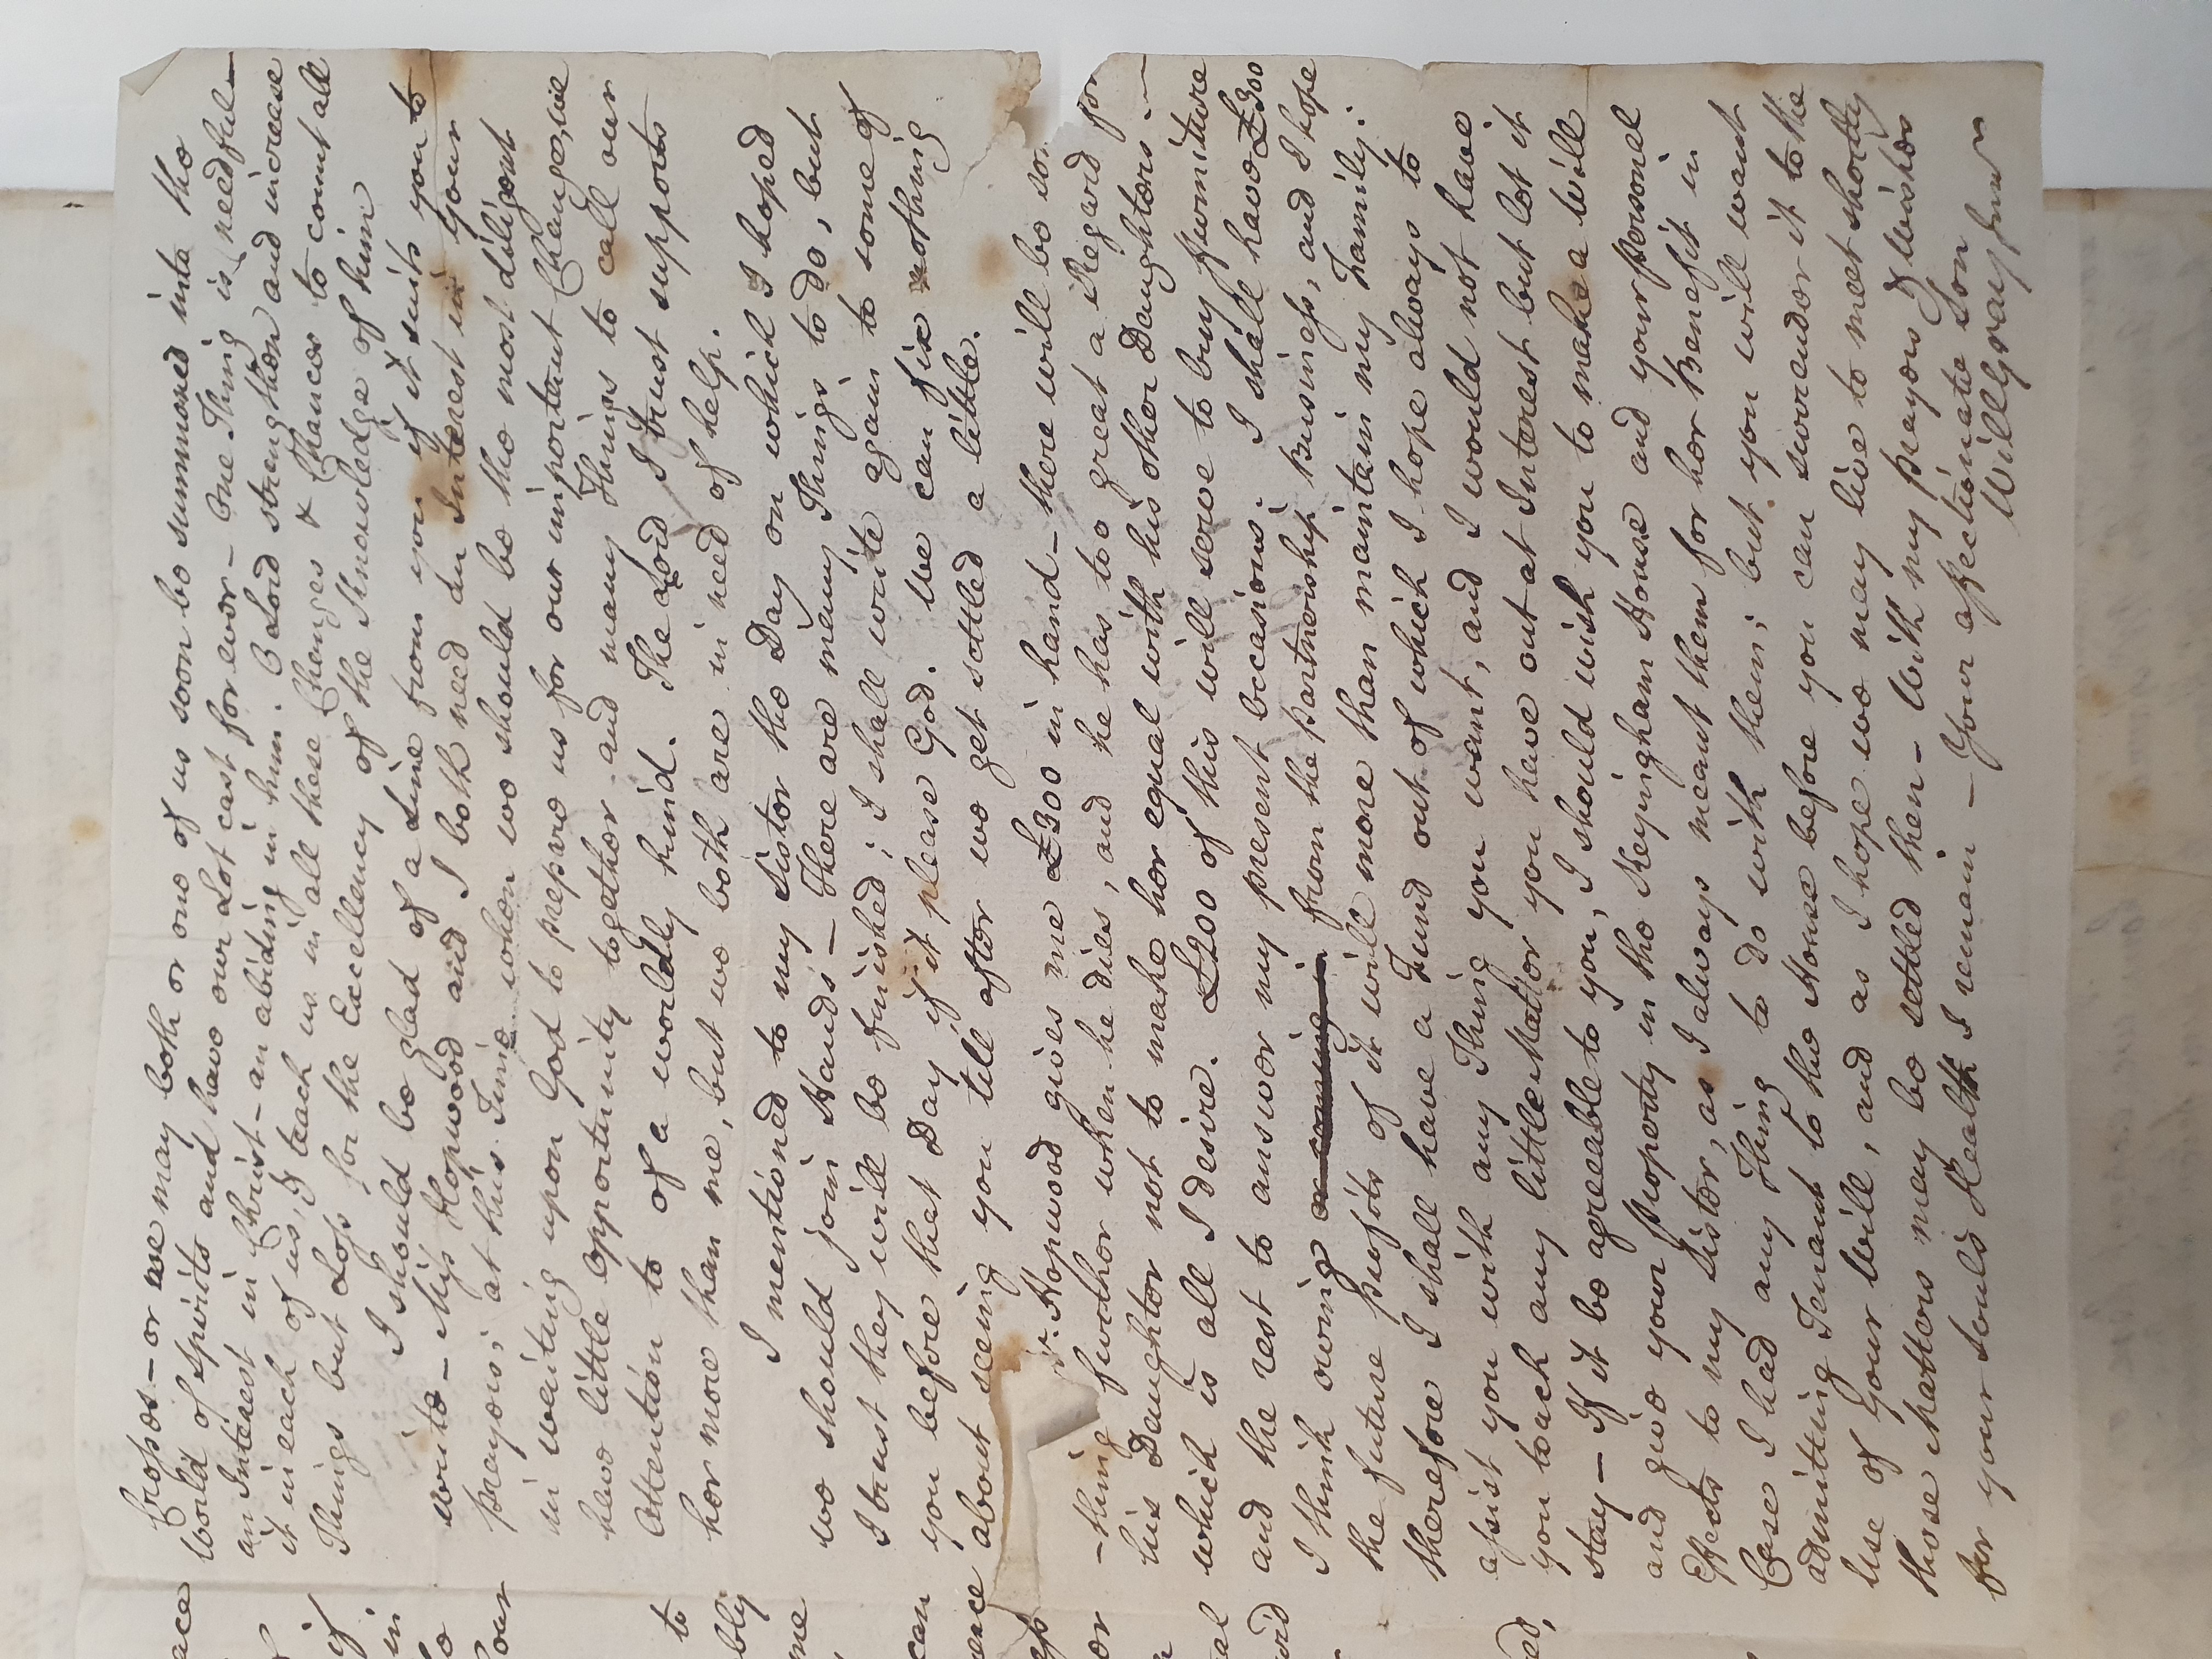 Crosses – or we may both or one of us soon be summoned into the
World of Spirits and have our Lot cast for ever – One Thing is needful –
an Interest in Christ – an abiding in him. O Lord strengthen and increase
it in each of us, & teach us in all these Changes & Chances to count all
Things but Loss for the Excellency of the Knowledge of him
I should be glad of a Line from you if it suits you to
write – Miss Hopwood and I both need an Interest in your
prayers; at this Time when we should be the most diligent
in waiting upon God to prepare us for our important Change, we
have little opportunity together – and many Things to call our
Attention to of a worldly kind. The Lord I trust supports
her more than me, but we both are in need of help.
I mentioned to my Sister the Day on which I hoped
we should join Hands – There are many Things to do, but
I trust they will be finished; I shall write again to some of
you before that Day if it please God. We can fix nothing
about seeing you till after we get settled a little.
Hopwood gives me £300 in hand – there will be
-thing further when he dies, and he has too great a Regard for
his Daughter not to make her equal with his other Daughters –
which is all I desire. £200 of this will serve to buy furniture
and the rest to answer my present occasions. I shall have £300
I think owing a coming in from the partnership Business, and I hope
the future profits of it will more than maintain my Family.
therefore I shall have a Fund out of which I hope always to
assist you with any Thing you want, and I would not have
you touch any little Matter you have out at Interest but let it
stay – If it be agreeable to you, I should wish you to make a Will
and give your property in the Keyingham House and your personel
Effects to my Sister, as I always meant them for her Benefit in
Case I had any Thing to do with them; but you will want
admitting Tenant to the House before you can surrender it to the
Use of your Will, and as I hope we may live to meet shortly
those Matters may be settled then – With my prayers & Wishes
for your Soul's Health I remain – Your affectionate Son
Will Gray Junr
ace
of
if
in
to
bly
me
can
ence
or
al
ed,